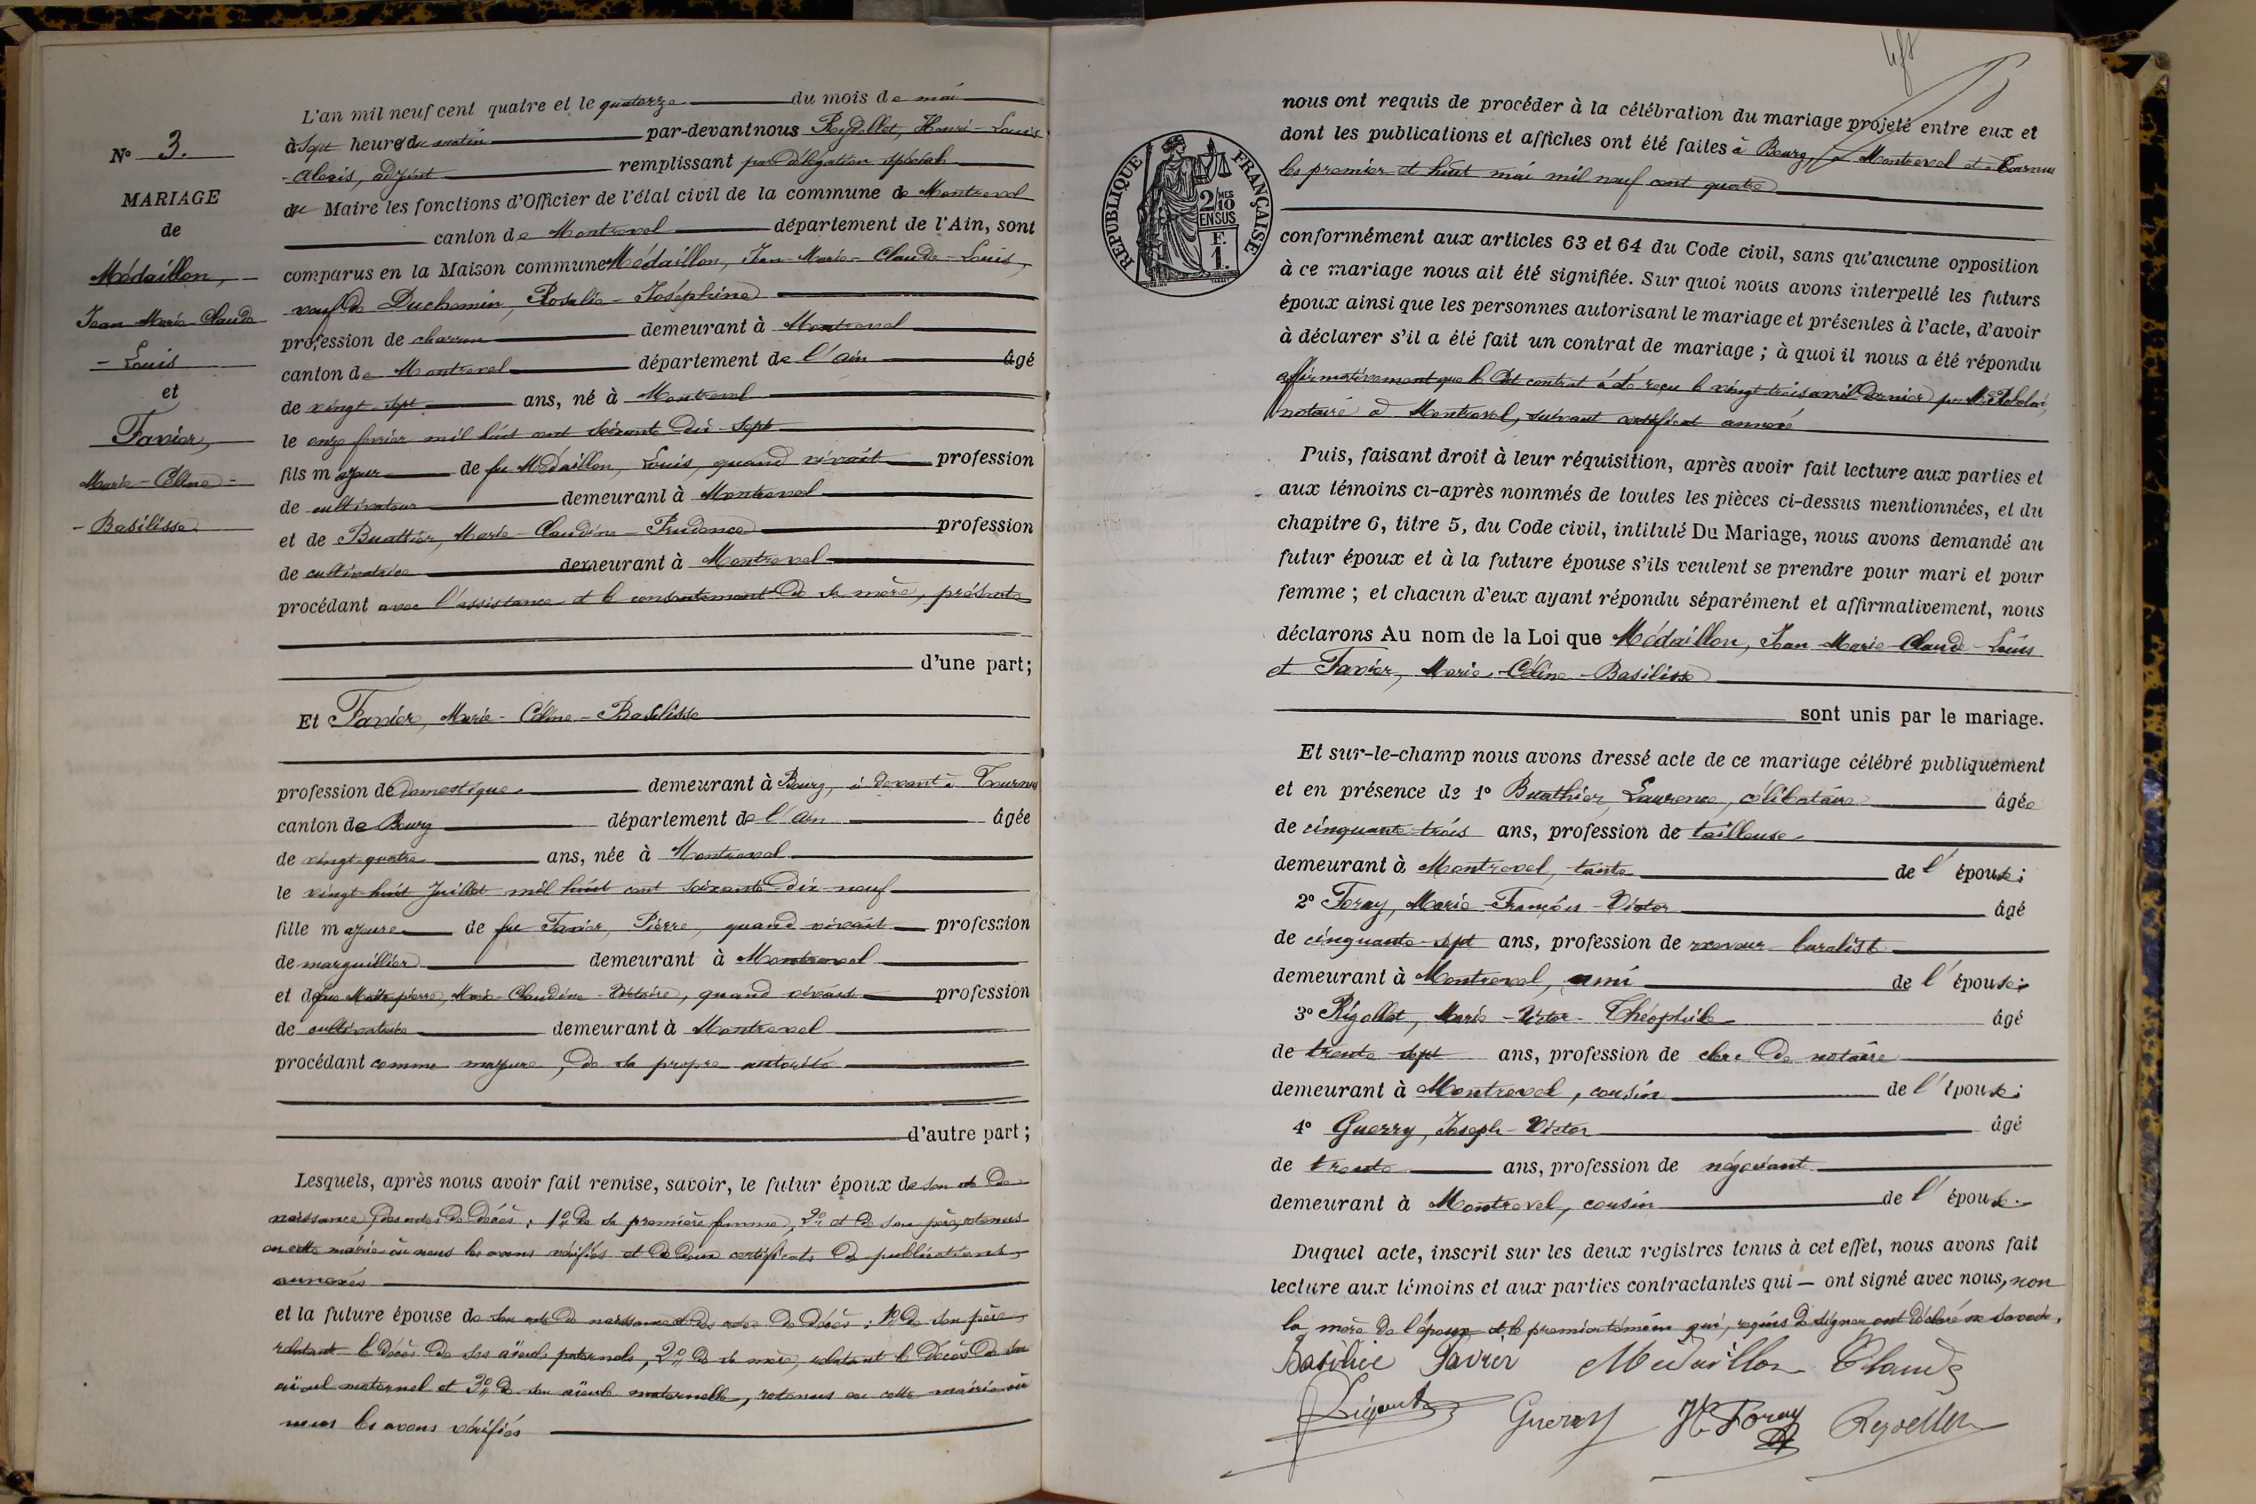 N° 3.
MARIAGE
de
Médaillon,
Jean Marie Claude
- Louis
et
Favier,
Marie - Céline -
- Basilisse
L'an mil neuf cent quatre et le quatorze du mois de mai
à sept heures du matin par-devant nous Reydellet, Henri - Louis
- Alexis, adjoint remplissant par délégation spéciale
du Maire les fonctions d'Officier de l'état civil de la commune de Montrevel
canton de Montrevel département de l'Ain, sont
comparus en la Maison commune Médaillon, Jean - Marie - Claude - Louis,
veuf de Duchemin, Rosalie - Joséphine
profession de charron demeurant à Montrevel
canton de Montrevel département de l'Ain âgé
de vingt-sept ans, né à Montrevel
le onze février mil huit cent soixante dix-sept
fils majeur de feu Médaillon, Louis, quand vivait profession
de cultivateur demeurant à Montrevel
et de Buathier, Marie - Claudine - Prudence profession
de cultivatrice demeurant à Montrevel
procédant avec l'assistance et le consentement de sa mère, présente
d'une part;
Et Favier, Marie - Céline - Basilisse
profession de domestique demeurant à Bourg, ci devant à Tournus
canton de Bourg département de l'Ain âgée
de vingt-quatre ans, née à Montrevel
le vingt-huit Juillet mil huit cent soixante dix-neuf
fille majeure de feu Favier, Pierre, quand vivait profession
de marguillier demeurant à Montrevel
et de feue Maîtrepierre, Marie - Claudine - Victoire, quand vivait profession
de cultivatrice demeurant à Montrevel
procédant comme majeure, de sa propre autorité
d'autre part;
Lesquels, après nous avoir fait remise, savoir, le futur époux de son acte de
naissance, des actes de décès, 1° de sa première femme, 2° et de son père, retenus
en cette mairie où nous les avons vérifiés et de deux certificats de publications
annexés
et la future épouse de son acte de naissance et des actes de décès: 1° de son père
relatant le décès de ses aïeuls paternels, 2° de sa mère, relatant le décès de son
aïeul maternel et 3° de son aïeule maternelle, retenus en cette mairie où
nous les avons vérifiés
REPUBLIQUE FRANÇAISE
2/10 MES
EN SUS
F.
1.
nous ont requis de procéder à la célébration du mariage projeté entre eux et
dont les publications et affiches ont été faites à Bourg, Montrevel et Tournus
les premier et huit mai mil neuf cent quatre
conformément aux articles 63 et 64 du Code civil, sans qu'aucune opposition
à ce mariage nous ait été signifiée. Sur quoi nous avons interpellé les futurs
époux ainsi que les personnes autorisant le mariage et présentes à l'acte, d'avoir
à déclarer s'il a été fait un contrat de mariage; à quoi il nous a été répondu
affirmativement que le dit contrat a été reçu le vingt trois avril dernier par Me
notaire à Montrevel, suivant certificat annexé
Puis, faisant droit à leur réquisition, après avoir fait lecture aux parties et
aux témoins ci-après nommés de toutes les pièces ci-dessus mentionnées, et du
chapitre 6, titre 5, du Code civil, intitulé Du Mariage, nous avons demandé au
futur époux et à la future épouse s'ils veulent se prendre pour mari et pour
femme; et chacun d'eux ayant répondu séparément et affirmativement, nous
déclarons Au nom de la Loi que Médaillon, Jean Marie - Claude - Louis
et Favier, Marie - Céline - Basilisse
sont unis par le mariage.
Et sur-le-champ nous avons dressé acte de ce mariage célébré publiquement
et en présence de 1° Buathier, Laurence, célibataire âgée
de cinquante-trois ans, profession de tailleuse
demeurant à Montrevel, tante de l'époux;
2° Foray, Marie - François - Victor âgé
de cinquante-sept ans, profession de receveur buraliste
demeurant à Montrevel, ami de l'épouse;
3° Rigollet, Marie - Victor - Théophile âgé
de trente-sept ans, profession de clerc de notaire
demeurant à Montrevel, cousin de l'épouse;
4° Guerry, Joseph - Victor âgé
de trente ans, profession de négociant
demeurant à Montrevel, cousin de l'épouse.
Duquel acte, inscrit sur les deux registres tenus à cet effet, nous avons fait
lecture aux témoins et aux parties contractantes qui — ont signé avec nous, non
la mère de l'époux et le premier témoin qui, requis de signer ont déclaré ne savoir.
Basilice Favier Médaillon Claude
Guerry Foray Reydellet